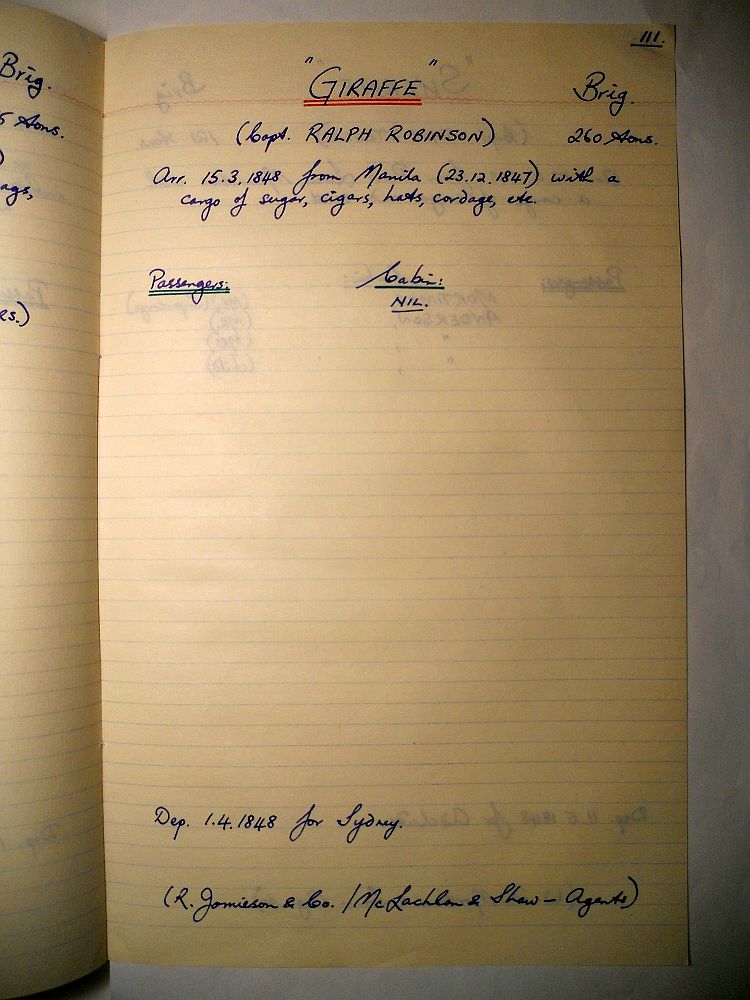 111.
"GIRAFFE" Brig.
(Capt. RALPH ROBINSON) 260 tons.
Arr. 15.3.1848 from Manila (23.12.1847) with a
cargo of sugar, cigars, hats, cordage, etc.
Passengers: Cabin:
NIL.
Dep. 1.4.1848 for Sydney.
(R. Jamieson & Co. / McLachlan & Shaw – Agents)
Brig.
5 tons.
)
ags,
RS.)